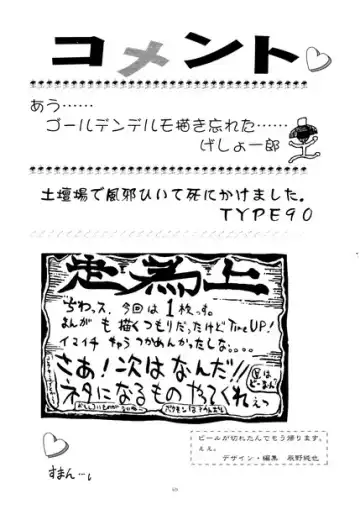 コメント
あう……
ゴールデンデルモ描き忘れた……
げしょ一郎
土壇場で風邪ひいて死にかけました。
TYPE90
走為上
ちわっス。今回は1枚っす。
まんがも描くつもりだったけどTime UP!
イマイチ
つかめんかったしな。。。
さあ!次はなんだ!!
ネタになるものやってくれぇっ
ビールが切れたんでもう帰ります。
ええ。
デザイン・編集 辰野純也
すまん…。